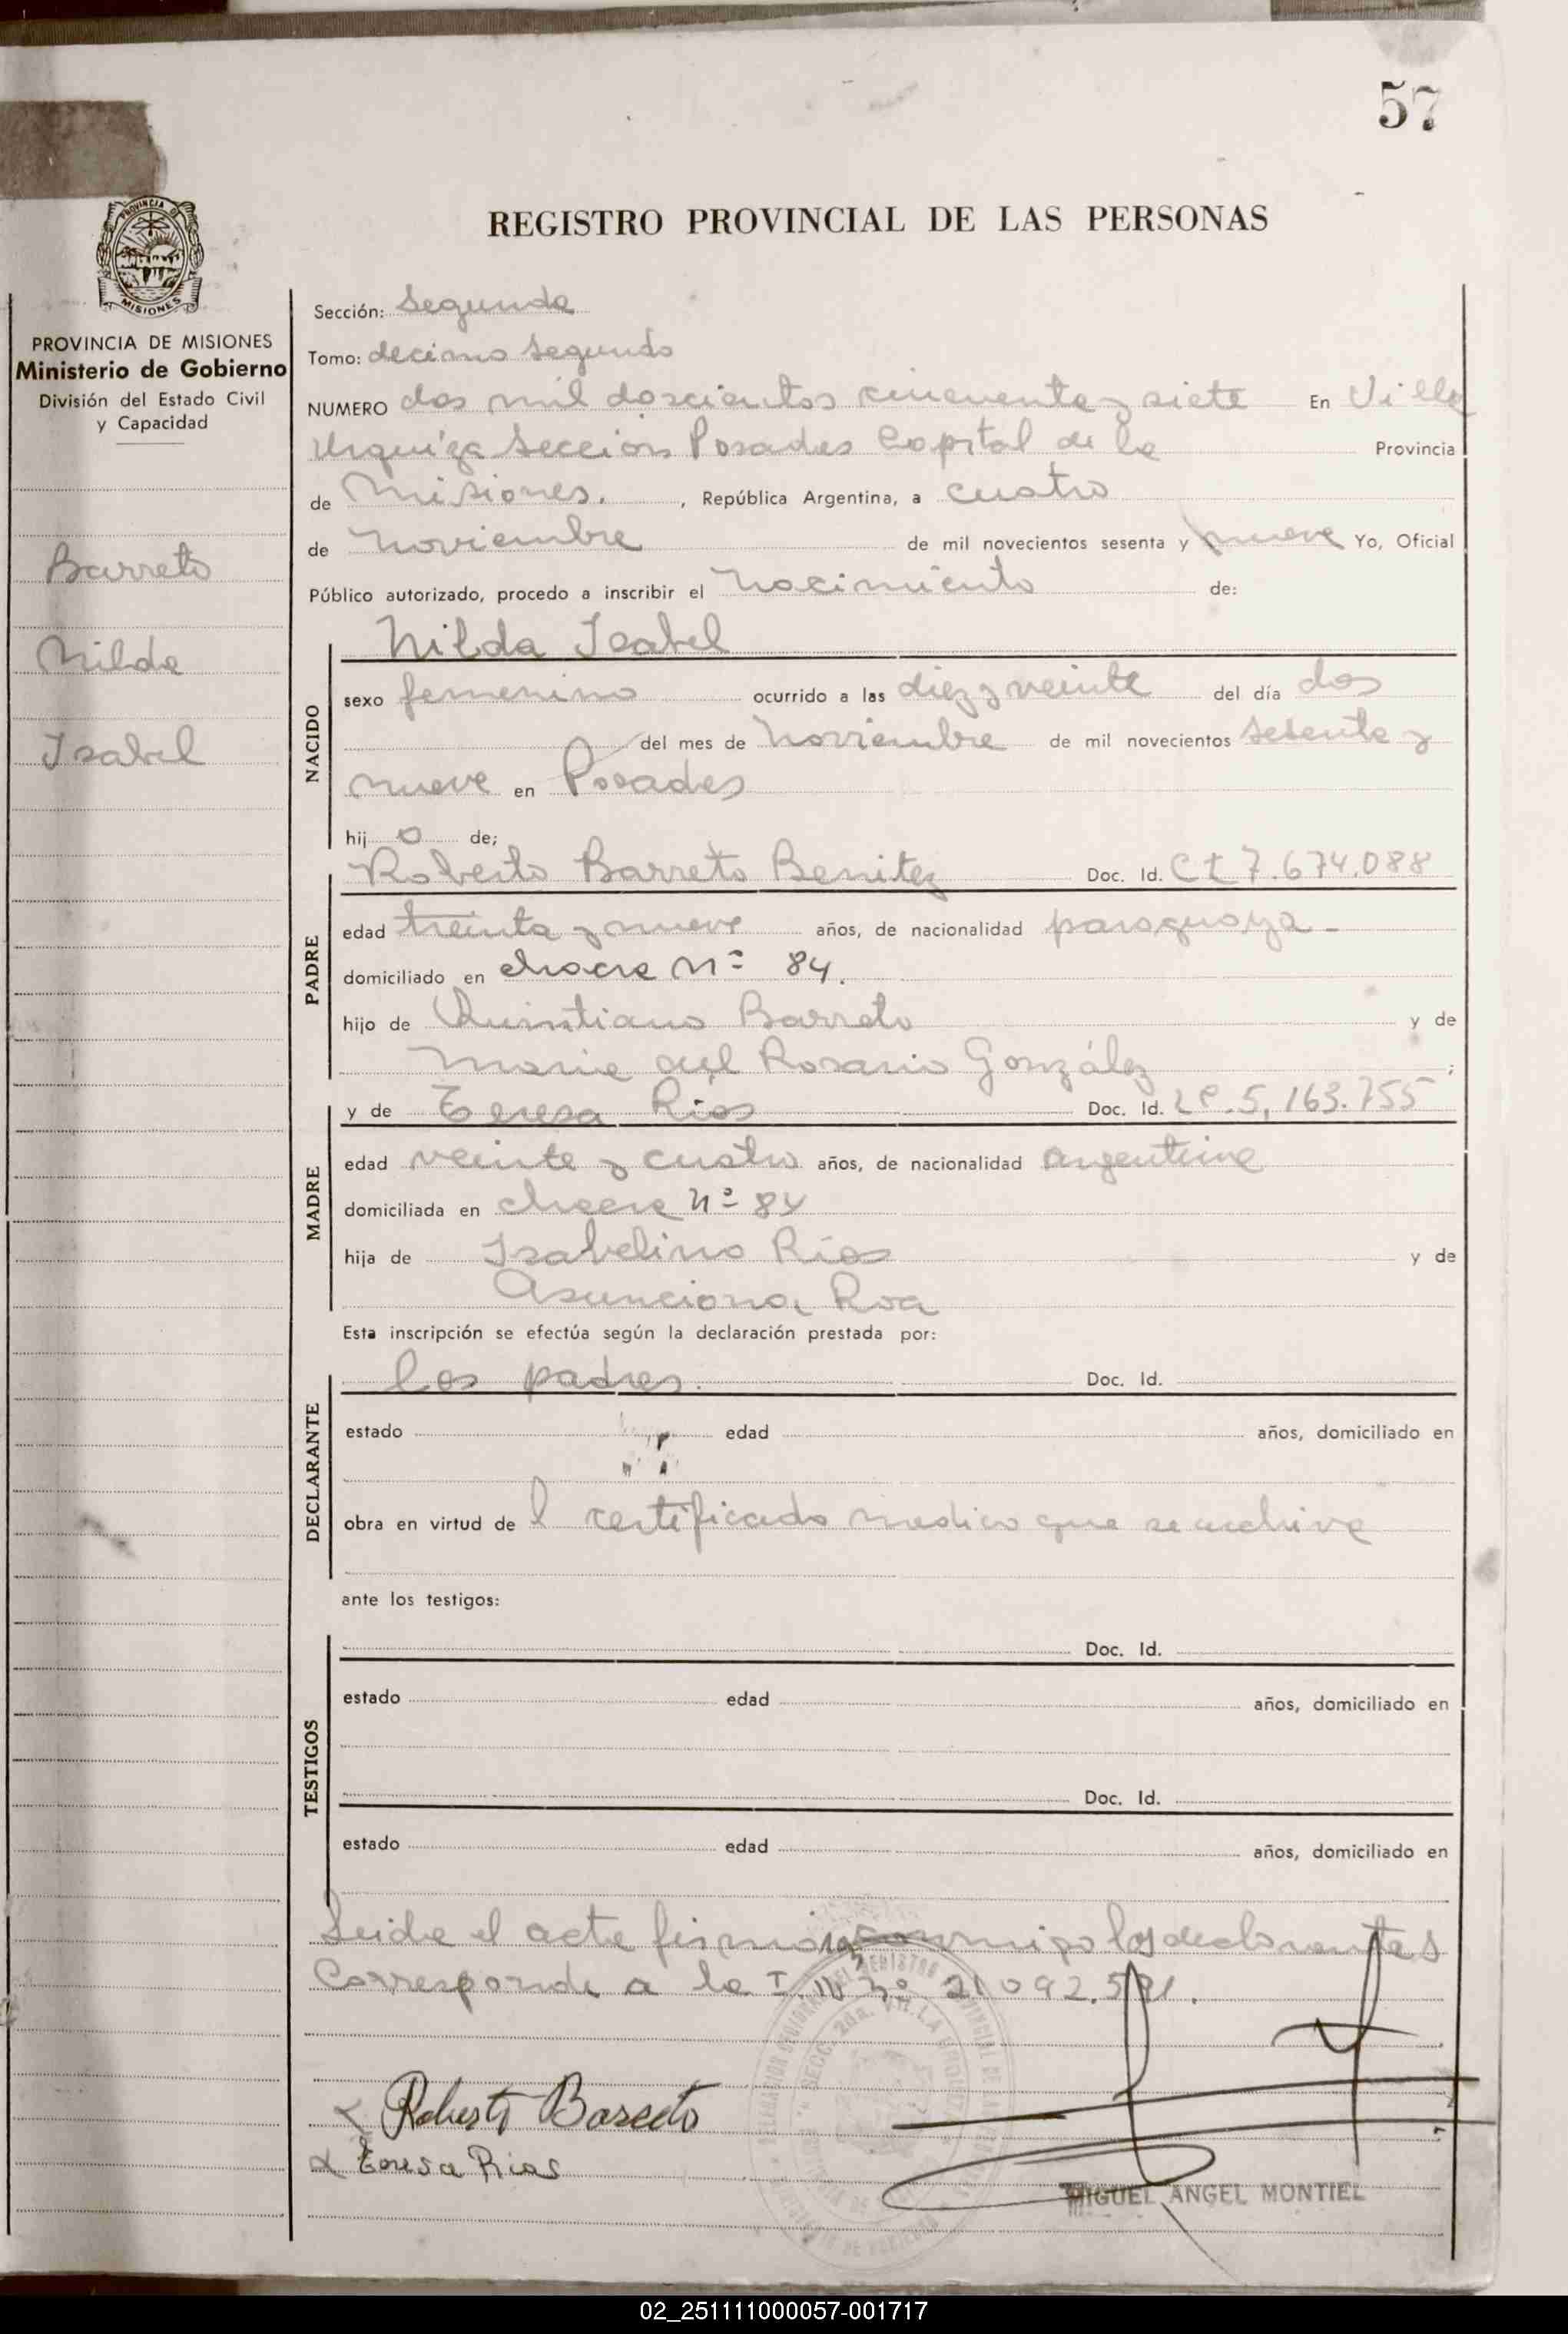 57
REGISTRO PROVINCIAL DE LAS PERSONAS
PROVINCIA DE MISIONES
Ministerio de Gobierno
División del Estado Civil
y Capacidad
Barreto
Nilda
Isabel
Sección: Segunda
Tomo: decimo segundo
NUMERO dos mil doscientos cincuenta y siete En Villa
Urquiza Sección Posadas Capital de la Provincia
de Misiones. , República Argentina, a cuatro
de Noviembre de mil novecientos sesenta y nueve Yo, Oficial
Público autorizado, procedo a inscribir el Nacimiento de:
NACIDO
Nilda Isabel
sexo femenino ocurrido a las diez y veinte del día dos
del mes de Noviembre de mil novecientos sesenta y
nueve en Posadas
hij a de;
PADRE
Roberto Barreto Benitez Doc. Id. CI 7.674.088
edad treinta y nueve años, de nacionalidad paraguaya-
domiciliado en chacra Nº 84.
hijo de Quintiano Barreto y de
Maria del Rosario González ;
MADRE
y de Teresa Rios Doc. Id. LC.5,163.755
edad veinte y cuatro años, de nacionalidad argentina
domiciliada en chacra Nº 84
hija de Isabelino Ríos y de
Asunciona Roa
Esta inscripción se efectúa según la declaración prestada por:
DECLARANTE
los padres. Doc. Id.
estado edad años, domiciliado en
obra en virtud de l certificado medico que se archiva
ante los testigos:
TESTIGOS
Doc. Id.
estado edad años, domiciliado en
Doc. Id.
estado edad años, domiciliado en
Leida el acta firman conmigo los declarantes
Corresponde a la I.N nº 21092.591.
Roberto Barreto
Teresa Rios
MIGUEL ANGEL MONTIEL
02_251111000057-001717